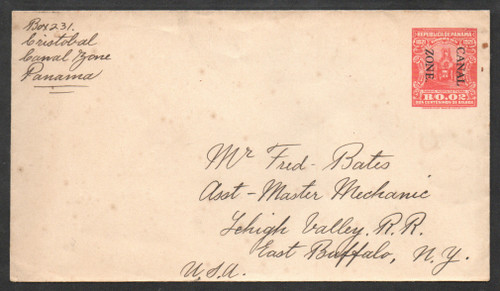 Box 231.
Cristobal
Canal Zone
Panama
REPUBLICA DE PANAMA
CANAL
ZONE
B0.02
Mr Fred - Bates
Asst - Master Mechanic
Lehigh Valley. R.R.
East Buffalo, N.Y.
U.S.A.